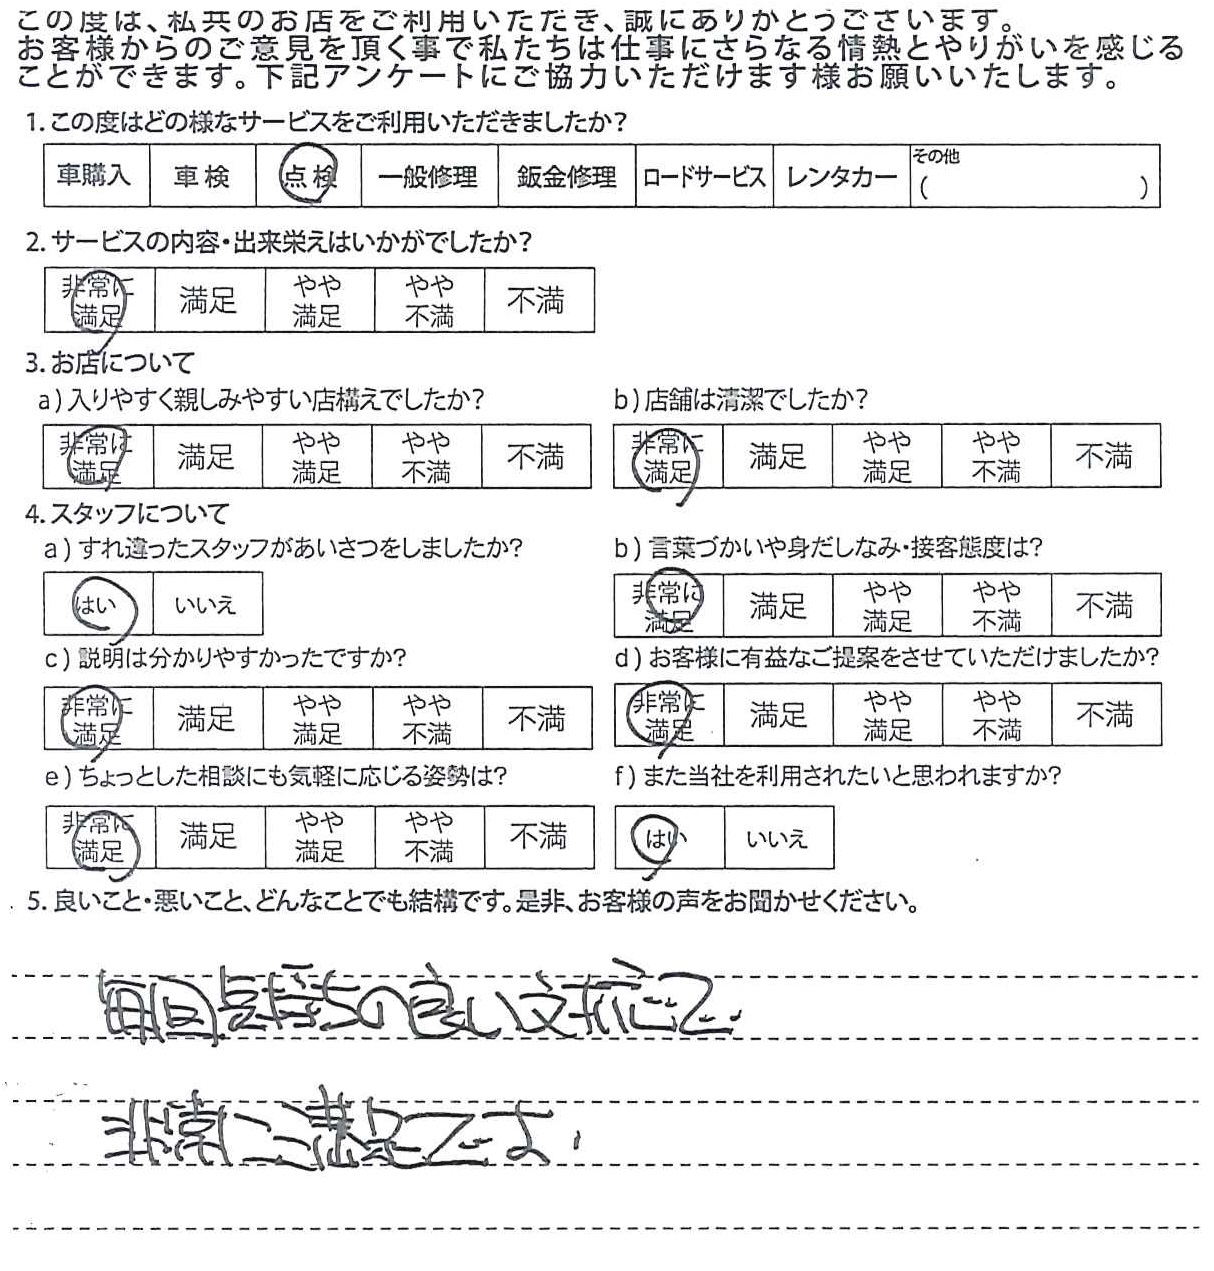 この度は、私共のお店をご利用いただき、誠にありがとうございます。
お客様からのご意見を頂く事で私たちは仕事にさらなる情熱とやりがいを感じる
ことができます。下記アンケートにご協力いただけます様お願いいたします。
1.この度はどの様なサービスをご利用いただきましたか?
車購入 車検 点検 一般修理 鈑金修理 ロードサービス レンタカー その他 ( )
2.サービスの内容・出来栄えはいかがでしたか?
非常に満足 満足 やや満足 やや不満 不満
3.お店について
a)入りやすく親しみやすい店構えでしたか?
非常に満足 満足 やや満足 やや不満 不満
b)店舗は清潔でしたか?
非常に満足 満足 やや満足 やや不満 不満
4.スタッフについて
a)すれ違ったスタッフがあいさつをしましたか?
はい いいえ
b)言葉づかいや身だしなみ・接客態度は?
非常に満足 満足 やや満足 やや不満 不満
c)説明は分かりやすかったですか?
非常に満足 満足 やや満足 やや不満 不満
d)お客様に有益なご提案をさせていただけましたか?
非常に満足 満足 やや満足 やや不満 不満
e)ちょっとした相談にも気軽に応じる姿勢は?
非常に満足 満足 やや満足 やや不満 不満
f)また当社を利用されたいと思われますか?
はい いいえ
5.良いこと・悪いこと、どんなことでも結構です。是非、お客様の声をお聞かせください。
毎回気持ちの良い対応で
非常に満足です。